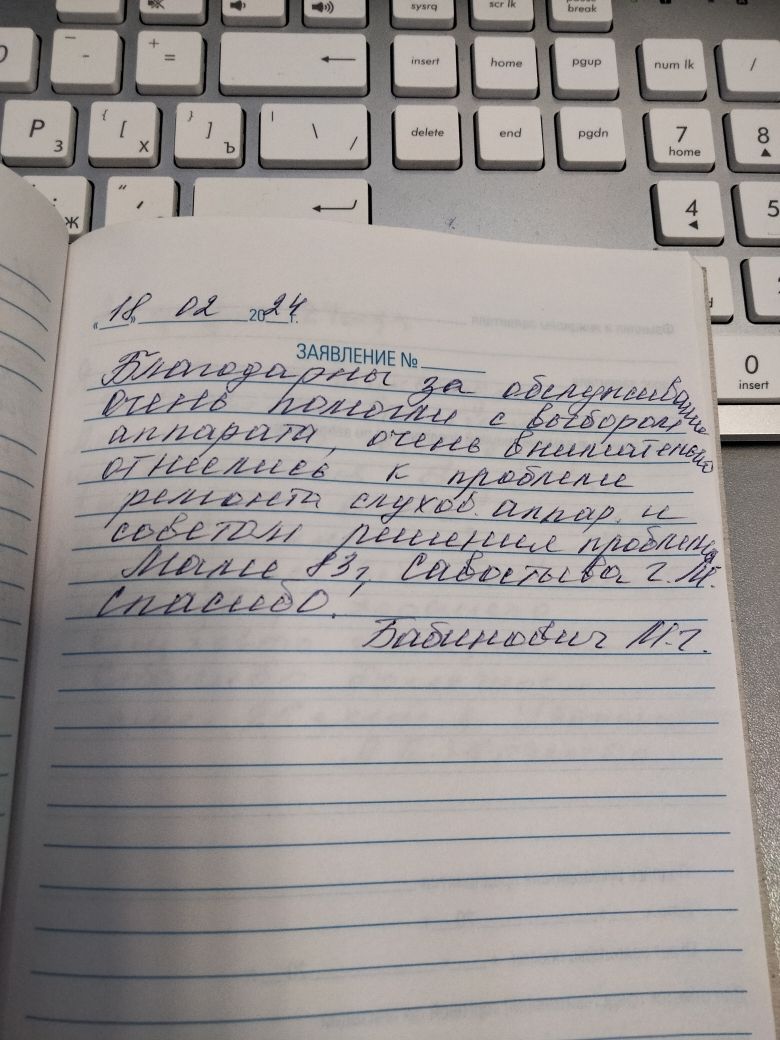 sysrq
scr lk
pause
break
-
+
=
insert
home
pgup
num lk
/
Р
З
{
[
Х
}
]
Ъ
|
\
/
delete
end
pgdn
7
home
8
Ж
4
5
0
insert
« 18 » 02 2024 г.
ЗАЯВЛЕНИЕ №
Благодарны за обслуживание
очень помогли с выбором
аппарата, очень внимательно
отнеслись к проблеме
ремонта слухов. аппар. и
советом решения проблемы
Маме 83 г,
Спасибо!
Бабинович М.г.